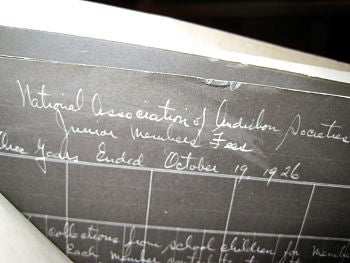 National Association of Audubon Societies
Junior Members Fees
Years Ended October 19 1926
collections from school children for
Each member